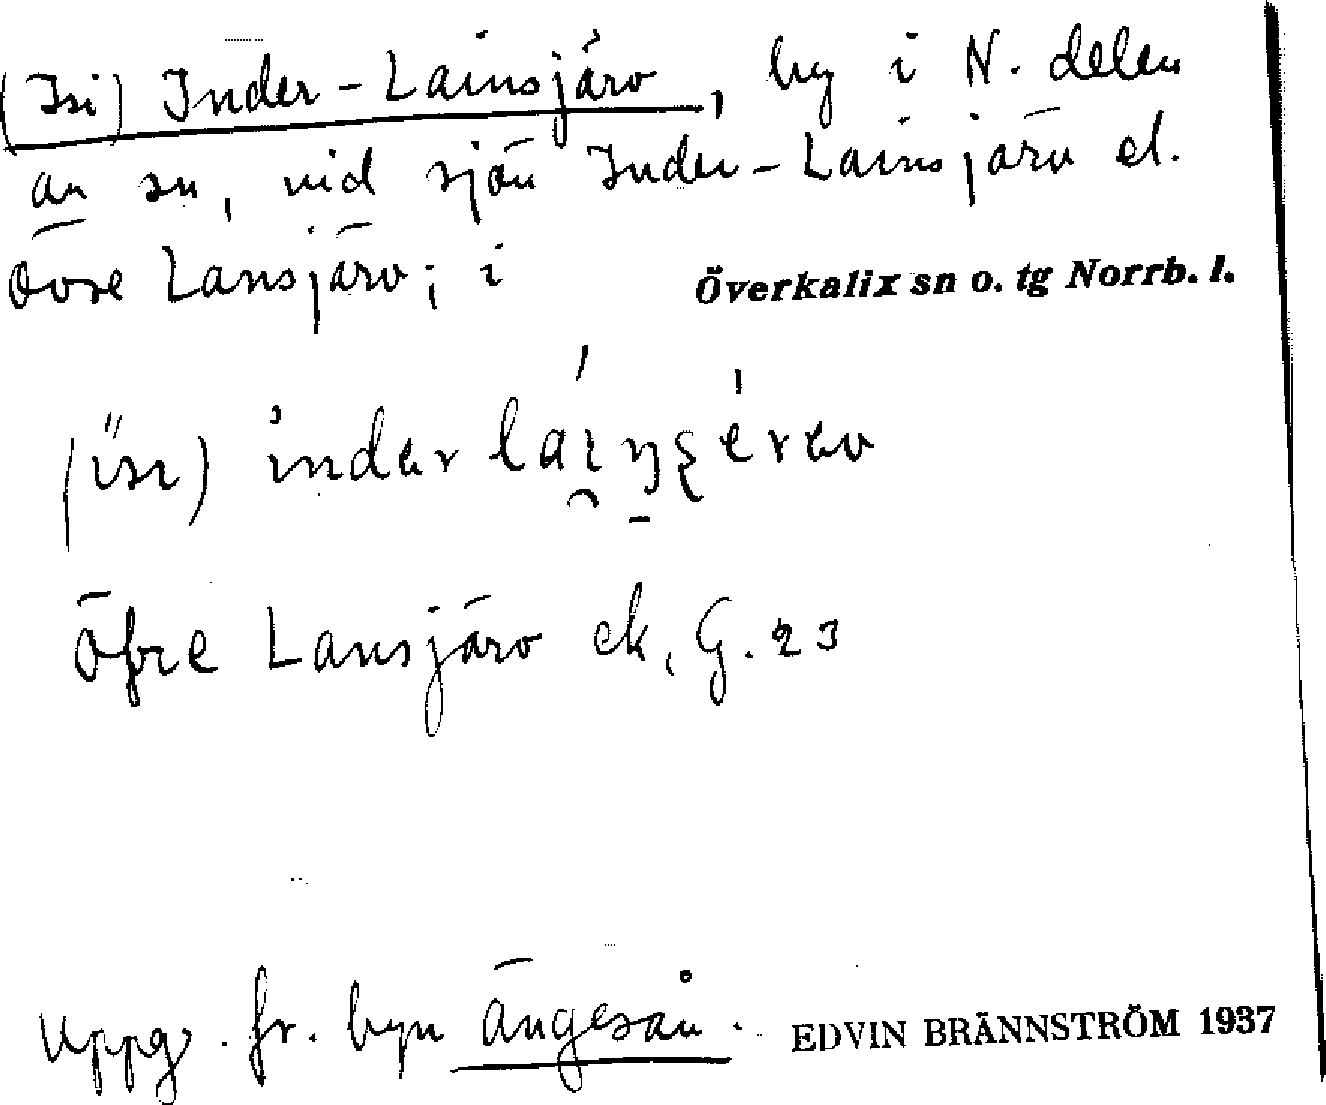 (Isi) Inder-Lainsjärv, by i N. delen
av sn, vid sjön Inder-Lainsjärv el.
Övre Lansjärv; i Överkalix sn o. tg Norrb. l.
Öfre Lansjärv ek, G. 23
Uppg. fr. byn Ängesån. EDVIN BRÄNNSTRÖM 1937